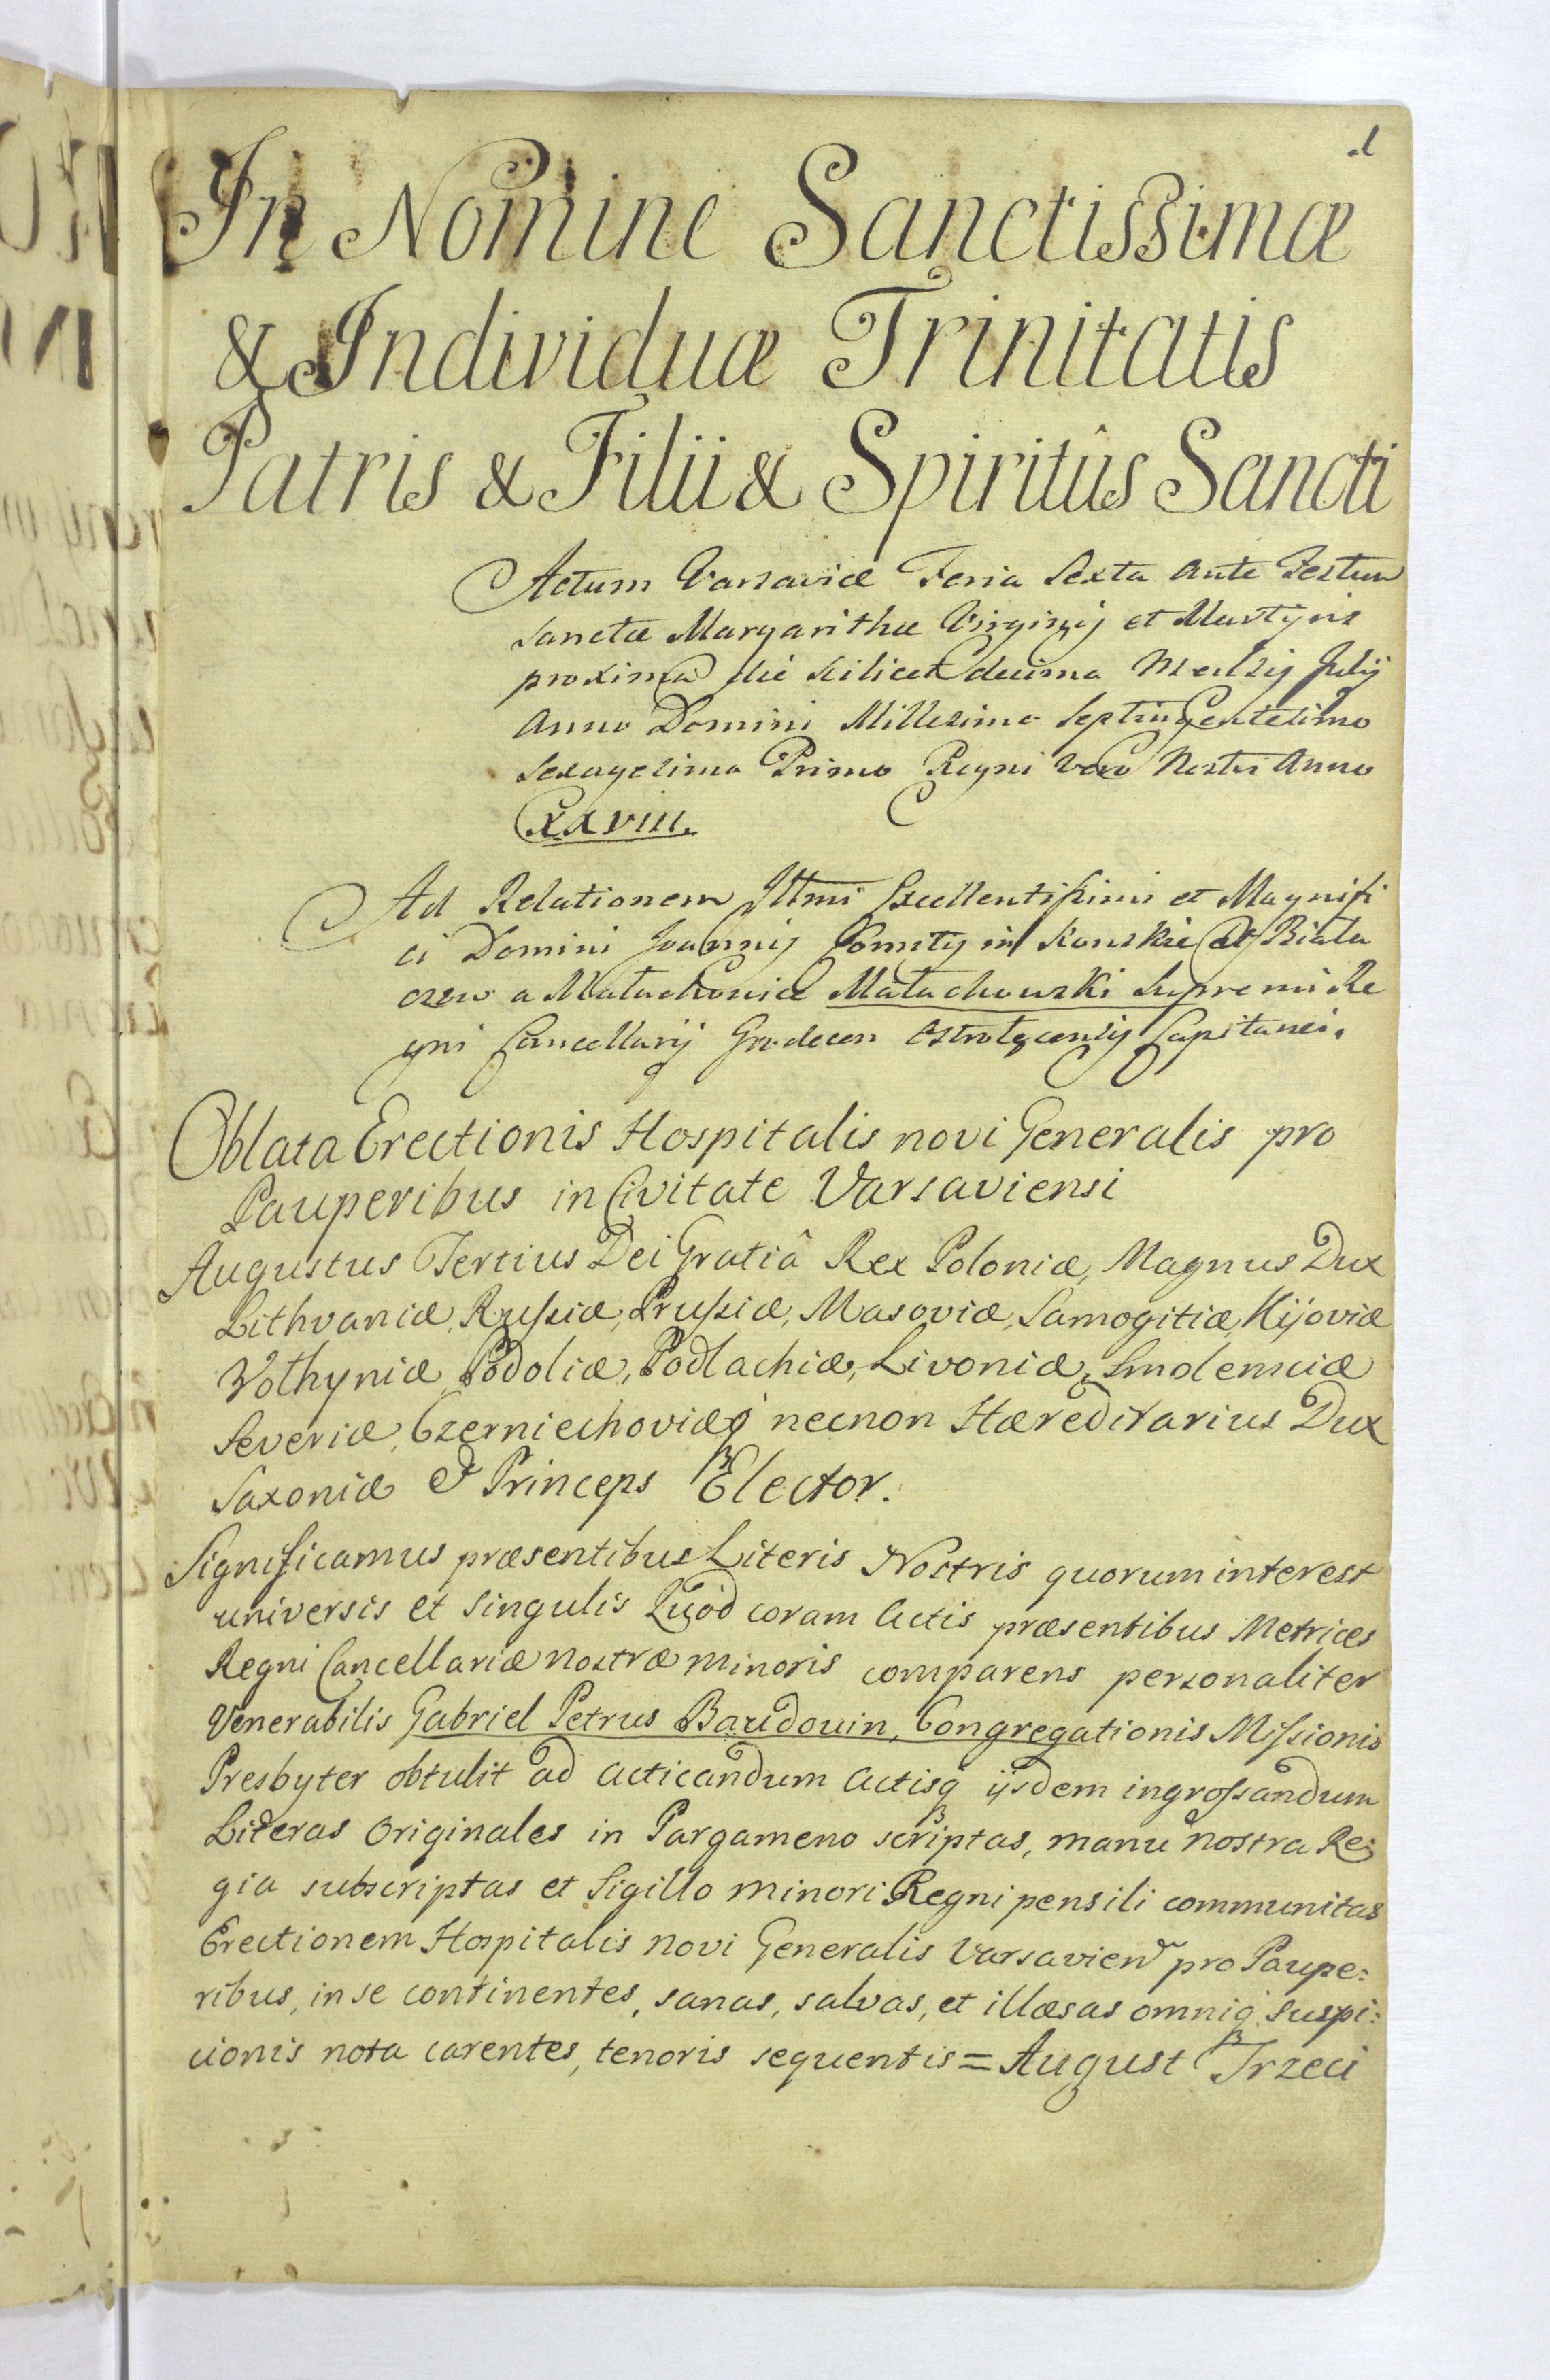 1
In Nomine Sanctissimæ
& Individuæ Trinitatis
Patris & Filii & Spiritûs Sancti
Actum Varsaviæ Feria Sexta Ante Festum
Sanctæ Margarithæ Virginis et Martyris
proxima die scilicet decima Mensis Julij
Anno Domini Millesimo Septingentesimo
Sexagesimo Primo Regni vero Nostri Anno
XXVIII.
Ad Relationem Illmi Excellentissimi et Magnifi
ci Domini Joannis Comitis in Konskie et Biala
czew a Małachowice Małachowski Supremi Re
gni Cancellarij Grodecen Ostrołęcensis Capitanei.
Oblata Erectionis Hospitalis novi Generalis pro
Pauperibus in Civitate Varsaviensi
Augustus Tertius Dei Gratiâ Rex Poloniæ, Magnus Dux
Lithvaniæ, Russiæ, Prussiæ, Masoviæ, Samogitiæ, Kijoviæ
Volhyniæ, Podoliæ, Podlachiæ, Livoniæ, Smolensciæ
Severiæ, Czerniechoviæq́ necnon Hæreditarius Dux
Saxoniæ & Princeps Elector.
Significamus præsentibus Literis Nostris quorum interest
universis et singulis Quòd coram Actis præsentibus Metrices
Regni Cancellariæ nostræ minoris comparens personaliter
Venerabilis Gabriel Petrus Baudouin, Congregationis Missionis
Presbyter obtulit ad acticandum Actisq́ ijsdem ingrossandum
Literas Originales in Pargameno scriptas, manu nostra Re:
gia subscriptas et Sigillo minori Regni pensili communitas
Erectionem Hospitalis novi Generalis Varsavien pro Paupe:
ribus, in se continentes, sanas, salvas, et illæsas omniq́ suspi:
cionis nota carentes, tenoris sequentis = August Trzeci